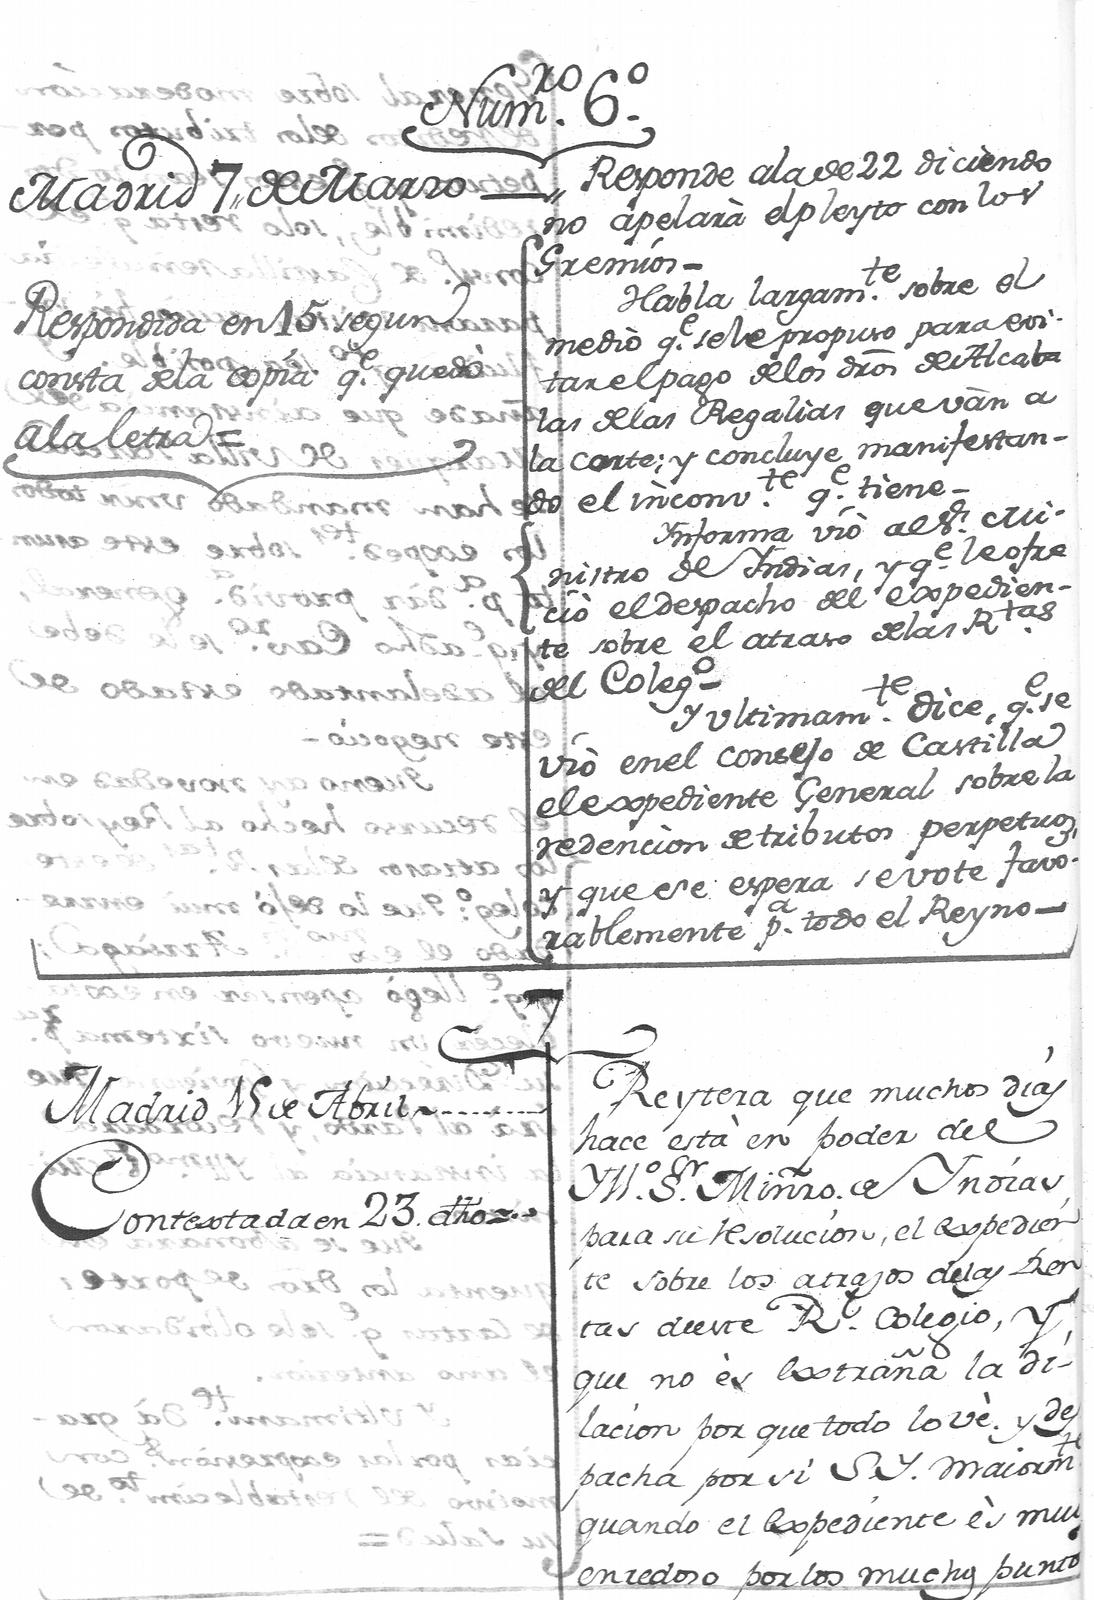 Num.ro 6.o
Madrid 7,, de Marzo —,,
Respondida en 15 segun
consta dela copia q.e quedó
ala letra =
Responde ala de 22 diciendo
no ápelarà el pleyto con los
Gremios=
Habla largam.te sobre el
medió q.e sele propuso para evi-
tar el pago delos dros de Alcaba
las delas Regalias que vàn a
la corte; y concluye manifestan-
do el inconv.te q.e tiene=
Ynforma vió al S.r Mi-
nistro de Yndias, y q.e le ofre
ció el despacho del expedien-
te sobre el atraso delas R.tas
del Coleg.o=
Y ultimam.te dice, q.e se
vió enel consejo de Castilla
el expediente General sobre la
redencion de tributos perpetuos,
y que ese espera se vote favo-
rablemente p.a todo el Reyno—
7
Madrid 15 de Abril
Contextada en 23. dho=
Reytera que muchos dias
hace està en poder del
Yll.o S.or Miñro. de Yndias,
para su resolucion, el expedien
te sobre los atrasos delas Ren
tas deeste R.l Colegio, y
que no ès extraña la di-
lacion por que todo lo vè. y des
pacha por si S.Y. maiorm.te
quando el expediente ès muy
enredoso por los muchos punto